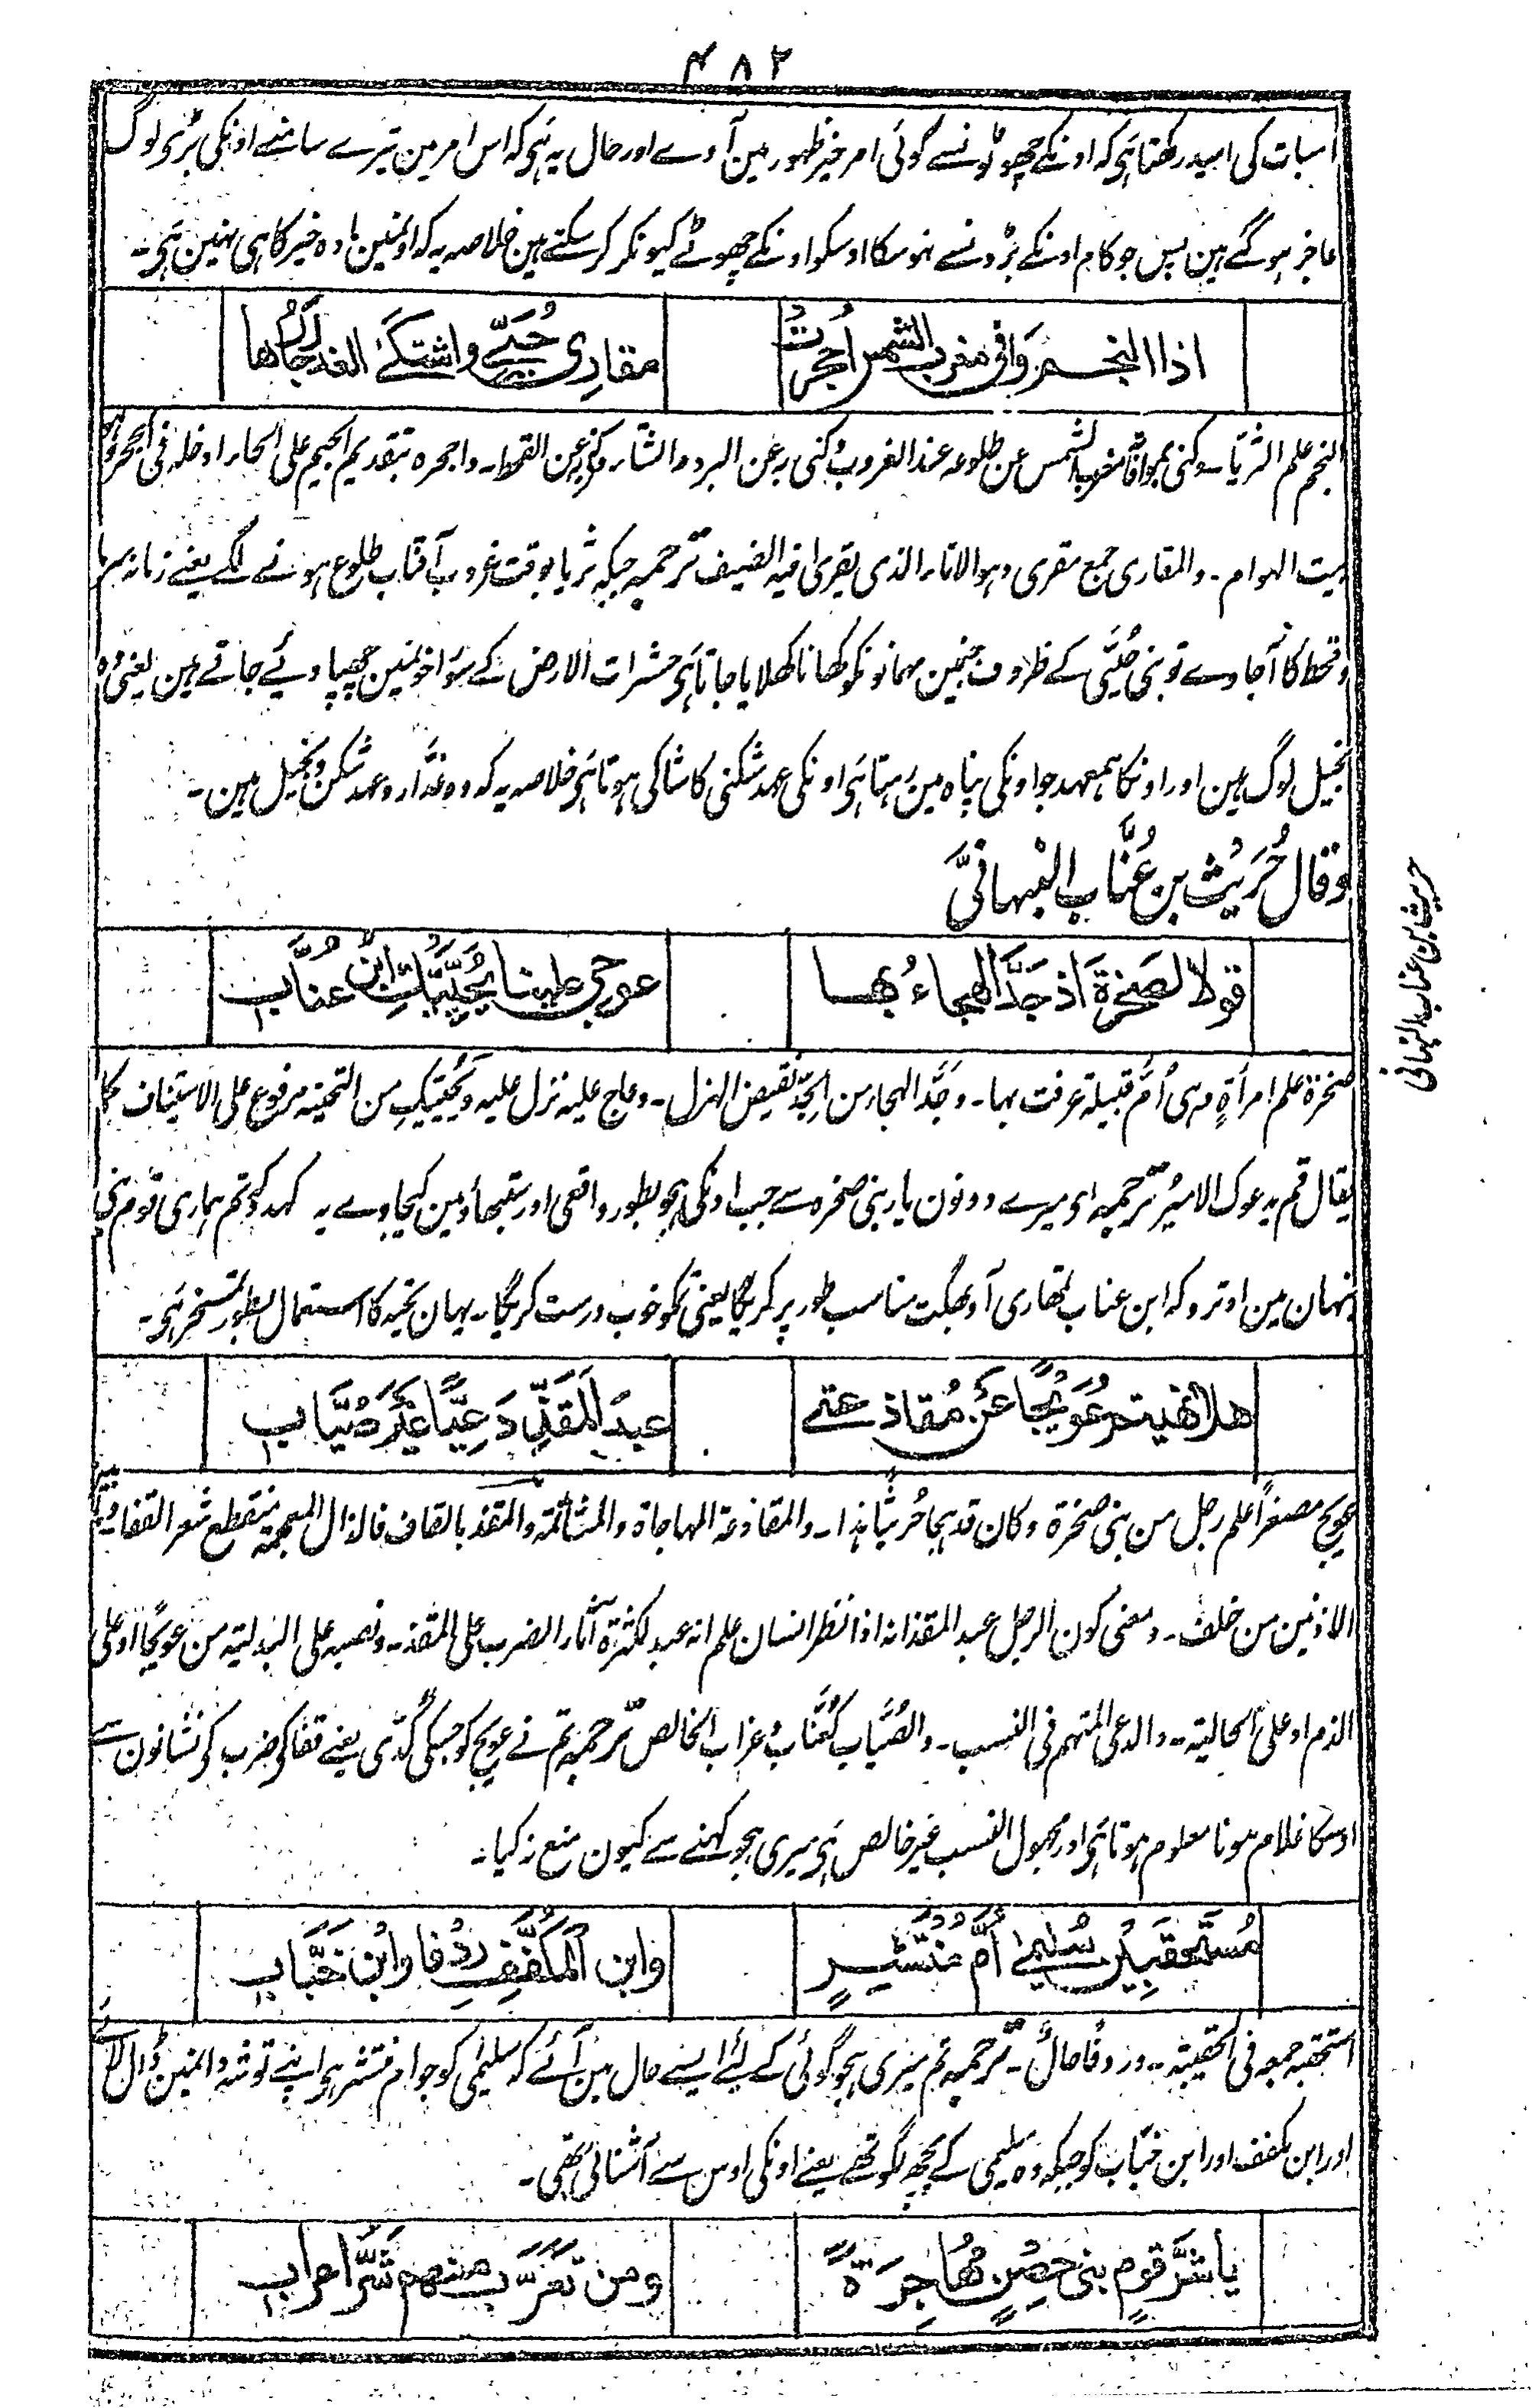 ۴۸۲
اسبات کی امید رکھتا ہی کہ اونکے چھوٹونسے کوئی امر خیر ظہور مین آوے اور حال یہ ہی کہ اس امر مین تیرے سامنے اونکی بڑی لوگ
عاجز ہوگے ہین پس جو کام اونکے بڑونسے نہوسکا اوسکو اونکے چھوٹے کیونکر کر سکتے ہین خلاصہ یہ کہ اونمین مادہ خیر کا ہی نہین ہی۔
اذا النجم وافى مغرب الشمس اُجحرت
مقارِى حُيَيّ واشتكىٰ الغدرَ جارُها
النجم علم الثریا۔ وکنی بموافاۃ مغرب الشمس عن طلوعہ عند الغروب وکنی بہ عن البرد والشتاء وکنی بہ عن القحط۔ واجحرہ بتقدیم الجیم علی الحاء ادخلہ فی الجحر وہو
بیت الہوام۔ والمقاری جمع مقری وہو الاناء الذی یقری فیہ الضیف ترجمہ جبکہ ثریا بوقت غروب آفتاب طلوع ہونے لگے یعنے زمانہ سرما
وقحط کا آجاوے تو بنی حُیَیّ کے ظروف جنمین مہمانونکو کھانا کھلایا جاتا ہی حشرات الارض کے سوراخونمین چھپا دیئے جاتے ہین یعنی وہ
بخیل لوگ ہین اور اونکا ہمعہد جو اونکی پناہ مین رہتا ہی اونکی عہد شکنی کا شاکی ہوتا ہی خلاصہ یہ کہ وہ غدّار وعہد شکن وبخیل ہین۔
وقال حُرَيْث بن عُنَّاب النبهانيّ
حریث بن عناب النبہانی
قولا لصَخرةَ اذ جَدَّ الهجاءُ بها
عوجى علينا يُحَيِّيكِ ابنُ عُنَّابِ
صخرة علم امرأة وہی اُمّ قبیلۃ عرفت بہا۔ وجَدَّ الہجاء من الجِدّ نقیض الہزل۔ وعاج علیہ نزل علیہ ویُحییکِ من التحیۃ مرفوع علی الاستیناف کما
یقال قم یدعوک الامیرُ ترجمہ ای میرے دونون یار بنی صخرہ سے جب اونکی ہجو بطور واقعی اور سبھاؤ مین کیجاوے یہ کہدو کہ تم ہماری قوم بنی
نبہان مین اوترو کہ ابن عناب تمھاری آوبھگت مناسب طور پر کریگا یعنی تمکو خوب درست کریگا۔ یہان تحیہ کا استعمال بطور تمسخر ہی۔
هلا نهيتم عُوَيجًا عن مُقاذعتى
عبدَ المَقَذِّ دَعِيًّا غيرَ صُيَّابِ
عویج مصغراً علم رجل من بنی صخرۃ وکان قد ہجا حُریثاً ہذا۔ والمقاذعۃ المہاجاۃ والمشاتمۃ والمقذ بالقاف فالذال المعجمۃ منقطع شعر القفا وبین
الاذنین من خلف۔ ومعنی کون الرجل عبد المقذ انہ اذا نظر انسان علم انہ عبد لکثرۃ آثار الضرب علی المقذ۔ ونصبہ علی البدلیۃ من عویجا او علی
الذم او علی الحالیۃ۔ والدعی المتہم فی النسب۔ والصُیّاب کعُنّاب وغراب الخالص ترجمہ تم نے عویج کو جسکی گُدّی یعنے قفا کی ضرب کی نشانون سے
اوسکا غلام ہونا معلوم ہوتا ہی اور مجہول النسب غیر خالص ہی میری ہجو کہنے سے کیون منع نہ کیا۔
مُستَحقِبينَ سُليمىٰ أُمَّ مُنتَشِرٍ
وابن المُكَفَّفِ رِدْفا وابْنَ خَبَّابِ
استحقبہ جمعہ فی الحقیبۃ۔ وردفًا حالٌ۔ ترجمہ تم میری ہجو گوئی کے لئے ایسے حال مین آئے کہ سلیمٰی کو جو ام منتشر ہی اپنے توشہ دانمین ڈال لائے
اور ابن مکفف اور ابن خبّاب کو جبکہ وہ سلیمی کے پیچھے لگو تھے یعنے اونکی اوس سے آشنائی تھی۔
يا شرَّ قومٍ بنى حِصْنٍ مُهاجِرَةً
ومن تَعَرَّبَ منهم شَرُّ اعراب